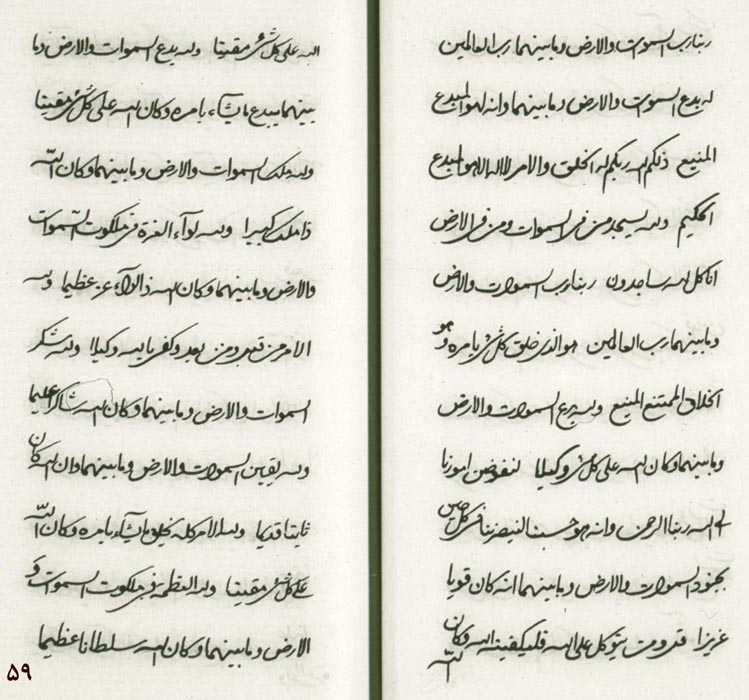 ربنا رب السموات والارض وما بينهما رب العالمين
له بدع السموات والارض وما بينهما وانه لهو المبدع
المنيع ذلكم الله ربكم له الخلق والامر لا اله الا هو المبدع
الحكيم ولله يسجد من في السموات ومن في الارض
انا كل لله ساجدون ربنا رب السموات والارض
وما بينهما رب العالمين هو الذي خلق كل شئ بامره وهو
الخلاق الممتنع المنيع ولله بدع السموات والارض
وما بينهما وكان الله على كل شئ وكيلا لنفوض امورنا
الى الله ربنا الرحمن وانه هو حسبنا لينصرنا في كل حين
بجنود السموات والارض وما بينهما انه كان قويا
عزيزا قدومت يتوكل على الله فليكفينه الله وكان
الله
الله على كل شئ مقيتا ولله بدع السموات والارض وما
بينهما يبدع ما يشآء بامره وكان الله على كل شئ مقيتا
ولله ملك السموات والارض وما بينهما وكان الله
ذا ملك كبيرا ولله لوآء العزة في ملكوت السموات
والارض وما بينهما وكان الله ذا لوآء عز عظيما ولله
الامر من قبل ومن بعد وكفى بالله وكيلا ولله شكر
السموات والارض وما بينهما وكان الله شاكرا عليما
ولله يقين السموات والارض وما بينهما وان الله كان
ثابتا قديما ولله الامر كله يخلق ما يشآء بامره وكان الله
على كل شئ مقيتا ولله العظمة في ملكوت السموات و
الارض وما بينهما وكان الله سلطانا عظيما
٥٩